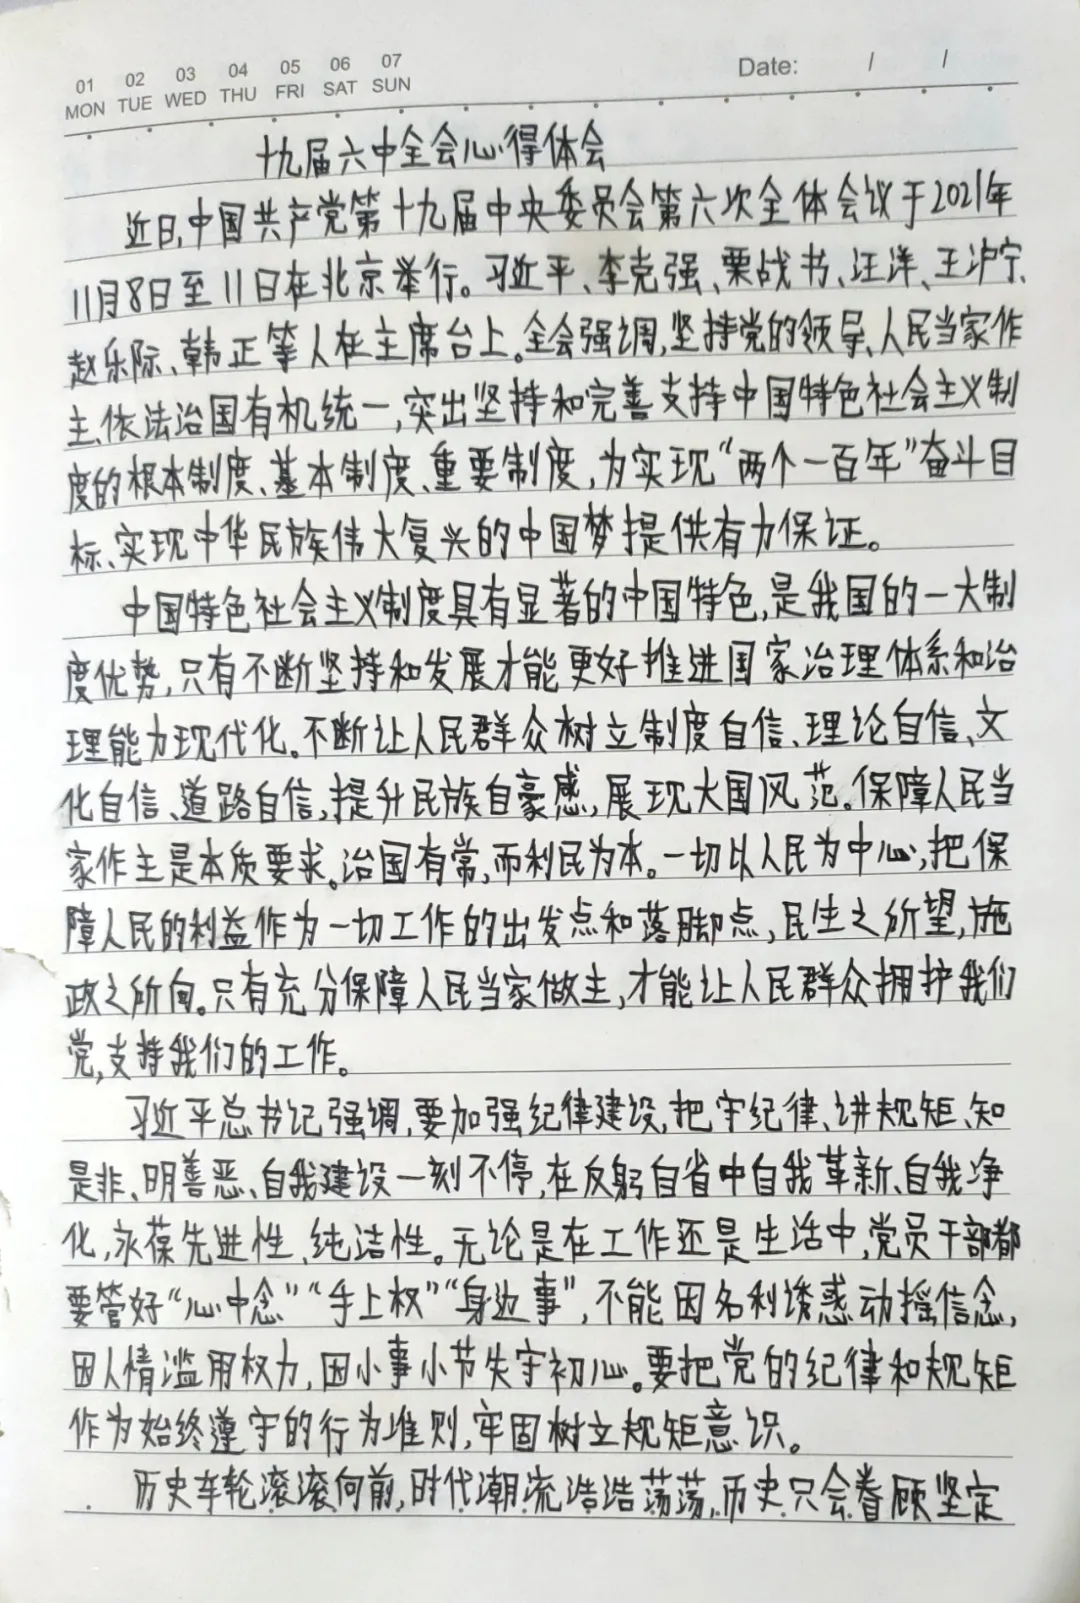 01 02 03 04 05 06 07
MON TUE WED THU FRI SAT SUN
Date: / /
十九届六中全会心得体会
近日,中国共产党第十九届中央委员会第六次全体会议于2021年
11月8日至11日在北京举行。习近平、李克强、栗战书、汪洋、王沪宁、
赵乐际、韩正等人在主席台上。全会强调,坚持党的领导、人民当家作
主、依法治国有机统一,突出坚持和完善支持中国特色社会主义制
度的根本制度、基本制度、重要制度,为实现“两个一百年”奋斗目
标、实现中华民族伟大复兴的中国梦提供有力保证。
中国特色社会主义制度具有显著的中国特色,是我国的一大制
度优势,只有不断坚持和发展才能更好推进国家治理体系和治
理能力现代化。不断让人民群众树立制度自信、理论自信、文
化自信、道路自信,提升民族自豪感,展现大国风范。保障人民当
家作主是本质要求。治国有常,而利民为本。一切以人民为中心,把保
障人民的利益作为一切工作的出发点和落脚点,民生之所望,施
政之所向。只有充分保障人民当家做主,才能让人民群众拥护我们
党,支持我们的工作。
习近平总书记强调,要加强纪律建设,把守纪律、讲规矩、知
是非、明善恶、自我建设一刻不停,在反躬自省中自我革新、自我净
化,永葆先进性、纯洁性。无论是在工作还是生活中,党员干部都
要管好“心中念”“手上权”“身边事”,不能因名利诱惑动摇信念,
因人情滥用权力,因小事小节失守初心。要把党的纪律和规矩
作为始终遵守的行为准则,牢固树立规矩意识。
历史车轮滚滚向前,时代潮流浩浩荡荡,历史只会眷顾坚定